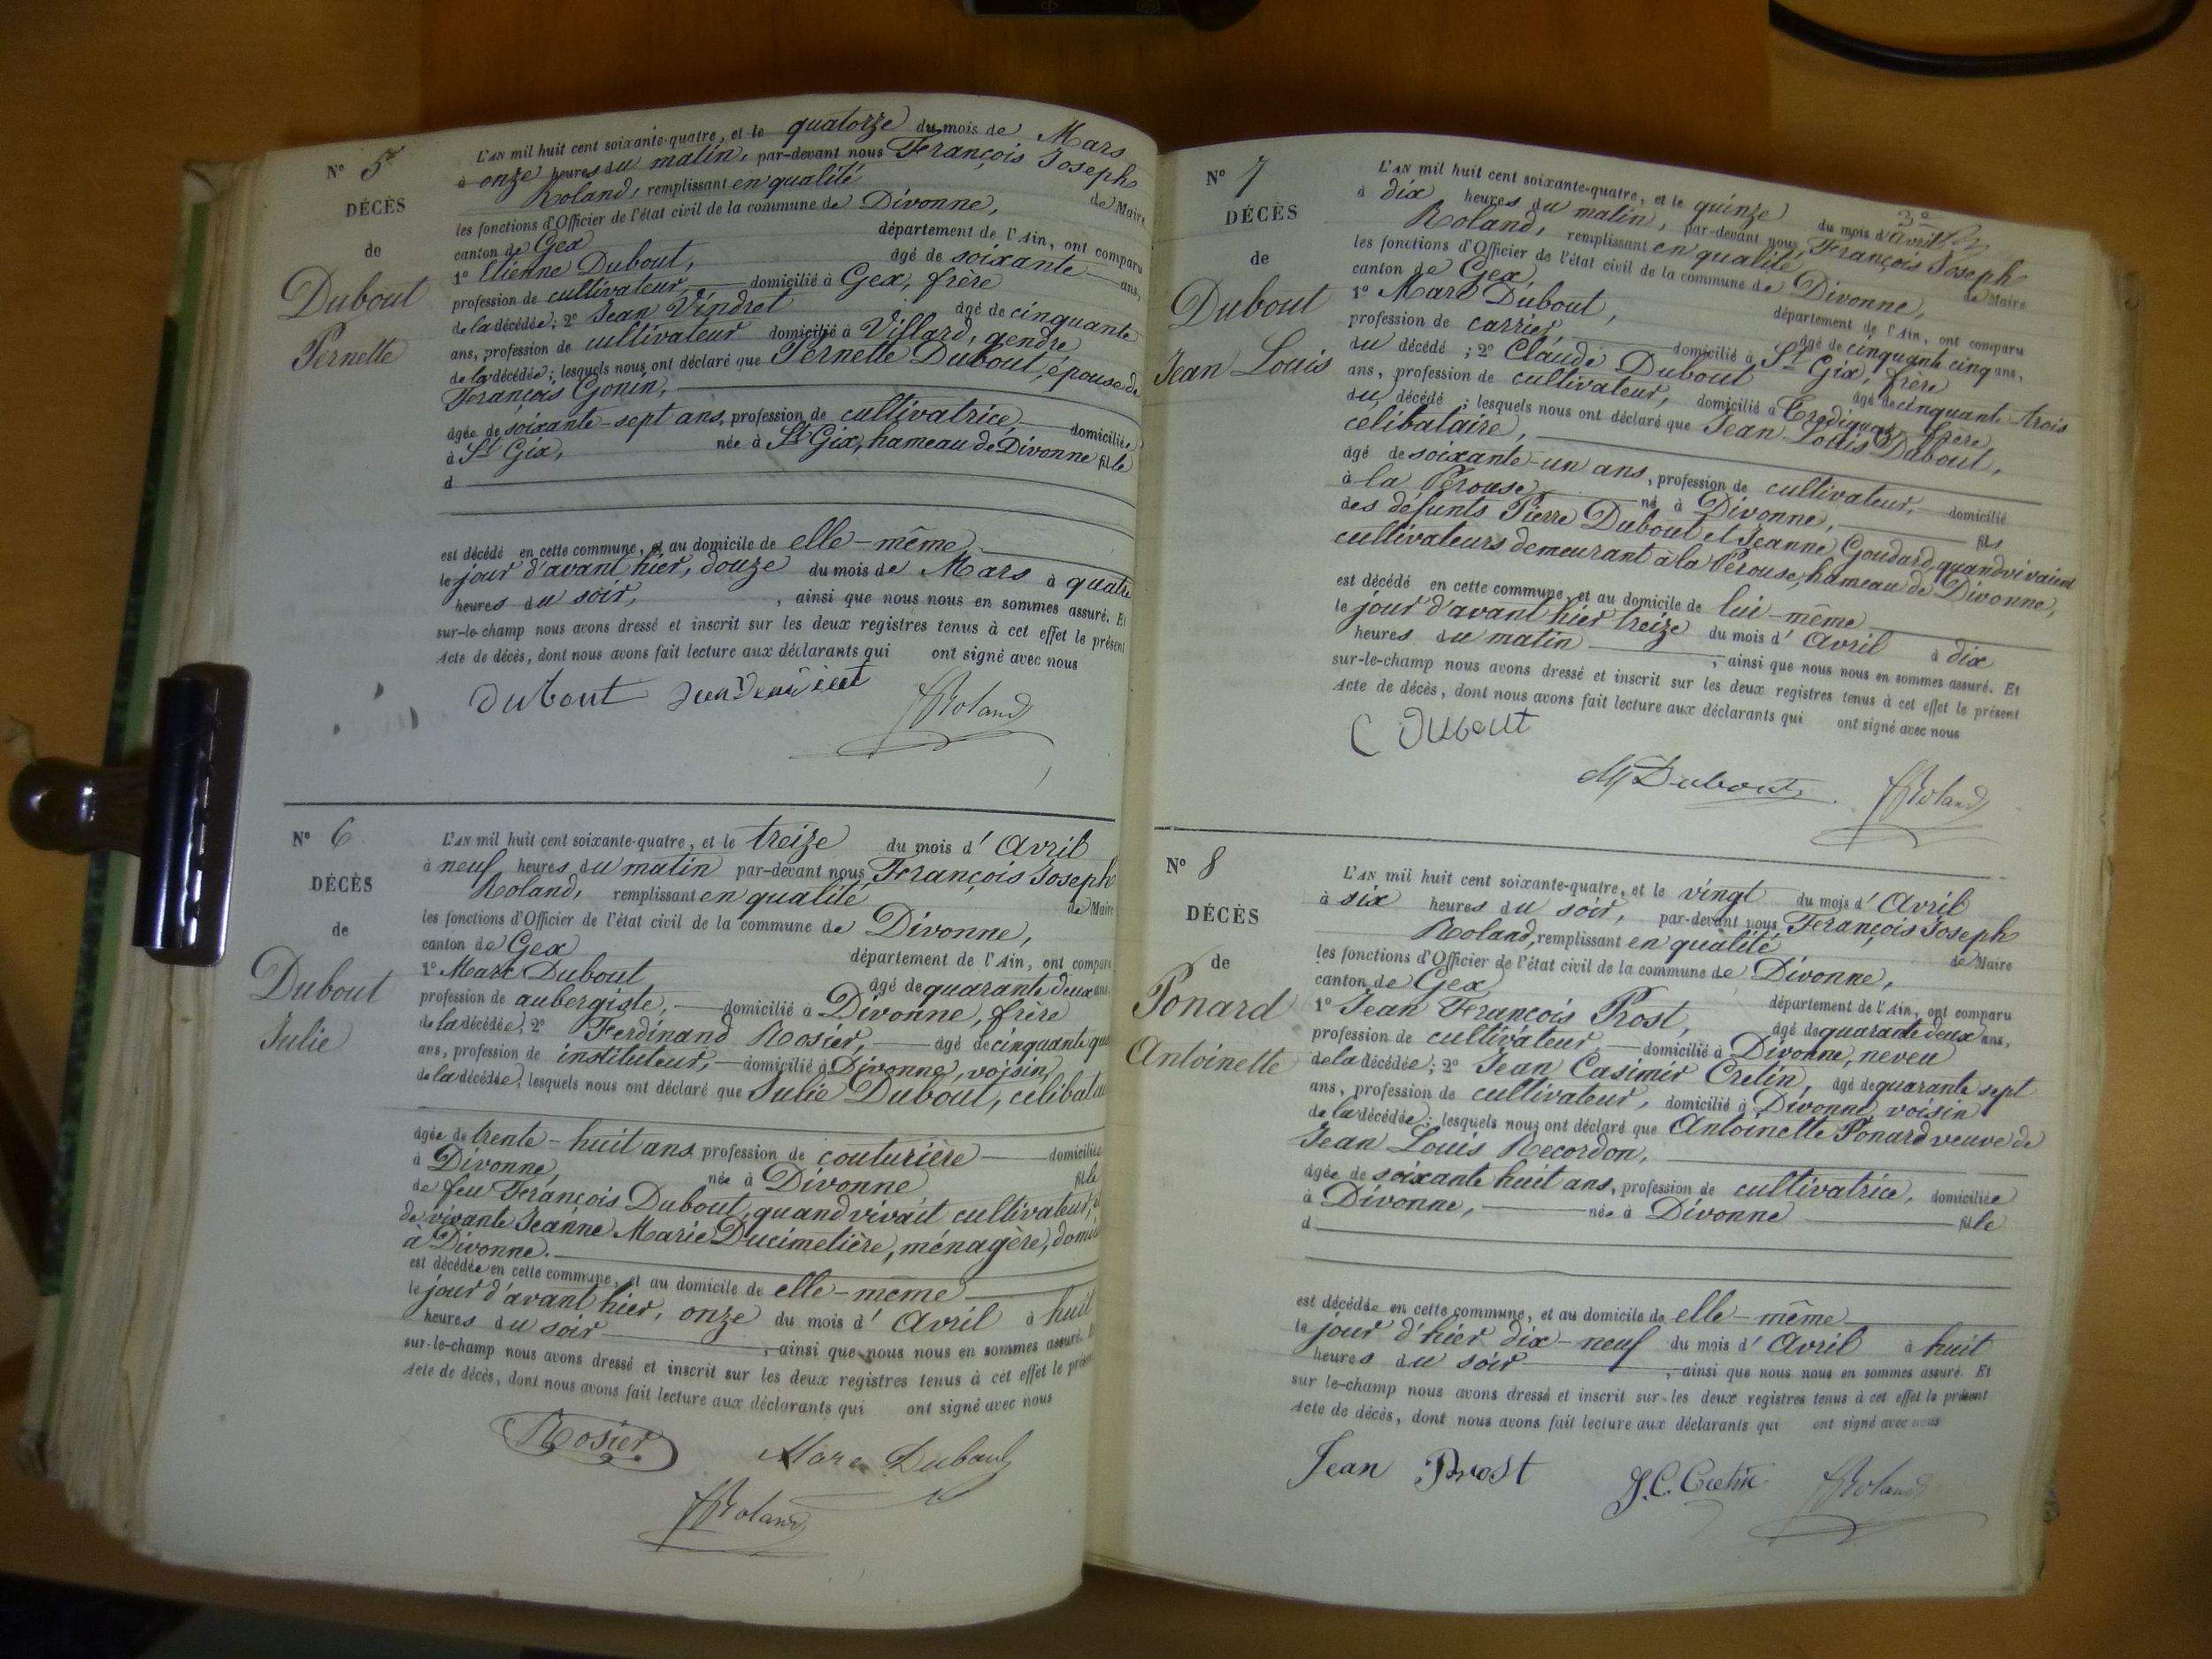 N° 5
DÉCÈS
de
Dubout
Pernette
L'AN mil huit cent soixante-quatre, et le quatorze du mois de Mars
à onze heures du matin, par-devant nous François Joseph
Roland, remplissant en qualité de Maire
les fonctions d'Officier de l'état civil de la commune de Divonne,
canton de Gex département de l'Ain, ont comparu
1° Etienne Dubout, âgé de soixante ans,
profession de cultivateur, domicilié à Gex, frère
de la décédée; 2° Jean Vindret âgé de cinquante
ans, profession de cultivateur domicilié à Villard, gendre
de la décédée; lesquels nous ont déclaré que Pernette Dubout, épouse de
François Gonin,
âgée de soixante-sept ans, profession de cultivatrice, domiciliée
à St Gix, née à St Gix, hameau de Divonne fille
d
est décédé en cette commune, et au domicile de elle-même
le jour d'avant hier, douze du mois de Mars à quatre
heures du soir, , ainsi que nous nous en sommes assuré. Et
sur-le-champ nous avons dressé et inscrit sur les deux registres tenus à cet effet le présent
Acte de décès, dont nous avons fait lecture aux déclarants qui ont signé avec nous
Dubout
Roland
N° 6
DÉCÈS
de
Dubout
Julie
L'AN mil huit cent soixante-quatre, et le treize du mois d'Avril
à neuf heures du matin par-devant nous François Joseph
Roland, remplissant en qualité de Maire
les fonctions d'Officier de l'état civil de la commune de Divonne,
canton de Gex département de l'Ain, ont comparu
1° Marc Dubout âgé de quarante deux ans
profession de aubergiste, domicilié à Divonne, frère
de la décédée; 2° Ferdinand Rosier, âgé de cinquante
ans, profession de instituteur, domicilié à Divonne, voisin
de la décédée; lesquels nous ont déclaré que Julie Dubout,
âgée de trente-huit ans profession de couturière domiciliée
à Divonne, née à Divonne fille
de feu François Dubout, quand vivait cultivateur,
de vivante Jeanne Marie Ducimetière, ménagère,
à Divonne.
est décédée en cette commune, et au domicile de elle-même
le jour d'avant hier, onze du mois d'Avril à huit
heures du soir , ainsi que nous nous en sommes assuré.
sur-le-champ nous avons dressé et inscrit sur les deux registres tenus à cet effet le présent
Acte de décès, dont nous avons fait lecture aux déclarants qui ont signé avec nous
Rosier Marc Dubout
Roland
N° 7
DÉCÈS
de
Dubout
Jean Louis
L'AN mil huit cent soixante-quatre, et le quinze du mois d'avril
à dix heures du matin, par-devant nous François Joseph
Roland, remplissant en qualité de Maire
les fonctions d'Officier de l'état civil de la commune de Divonne,
canton de Gex, département de l'Ain, ont comparu
1° Marc Dubout, âgé de cinquante cinq ans,
profession de carrier domicilié à St Gix, frère
du décédé; 2° Claude Dubout âgé de cinquante-trois
ans, profession de cultivateur, domicilié à frère
du décédé; lesquels nous ont déclaré que Jean Louis Dubout,
célibataire,
âgé de soixante-un ans, profession de cultivateur, domicilié
à la Pérouse, né à Divonne, fils
des défunts Pierre Dubout et Jeanne Goudard, quand vivaient
cultivateurs demeurant à la Pérouse, hameau de Divonne,
est décédé en cette commune, et au domicile de lui-même
le jour d'avant hier treize du mois d'Avril à dix
heures du matin , ainsi que nous nous en sommes assuré. Et
sur-le-champ nous avons dressé et inscrit sur les deux registres tenus à cet effet le présent
Acte de décès, dont nous avons fait lecture aux déclarants qui ont signé avec nous
C Dubout
M Dubout Roland
N° 8
DÉCÈS
de
Ponard
Antoinette
L'AN mil huit cent soixante-quatre, et le vingt du mois d'Avril
à six heures du soir, par-devant nous François Joseph
Roland, remplissant en qualité de Maire
les fonctions d'Officier de l'état civil de la commune de Divonne,
canton de Gex département de l'Ain, ont comparu
1° Jean François Prost, âgé de quarante deux ans,
profession de cultivateur domicilié à Divonne, neveu
de la décédée; 2° Jean Casimir Cretin, âgé de quarante sept
ans, profession de cultivateur, domicilié à Divonne, voisin
de la décédée; lesquels nous ont déclaré que Antoinette Ponard veuve de
Jean Louis Recordon,
âgée de soixante huit ans, profession de cultivatrice, domiciliée
à Divonne, née à Divonne fille
d
est décédée en cette commune, et au domicile de elle-même
le jour d'hier dix-neuf du mois d'Avril à huit
heures du soir , ainsi que nous nous en sommes assuré. Et
sur le-champ nous avons dressé et inscrit sur les deux registres tenus à cet effet le présent
Acte de décès, dont nous avons fait lecture aux déclarants qui ont signé avec nous
Jean Prost J. C. Cretin Roland